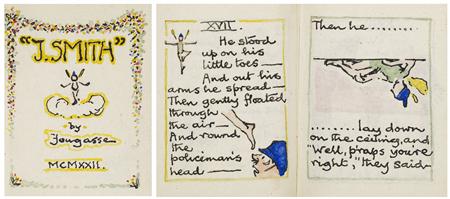 "J. SMITH"
by
Fougasse
MCMXXII.
XVII.
He stood
up on his
little toes —
And out his
arms he spread —
Then gently floated
through
the air —
And round
the
policeman's
head —
Then he ..........
.......... lay down
on the ceiling, and
"Well, p'raps you're
right," they said —